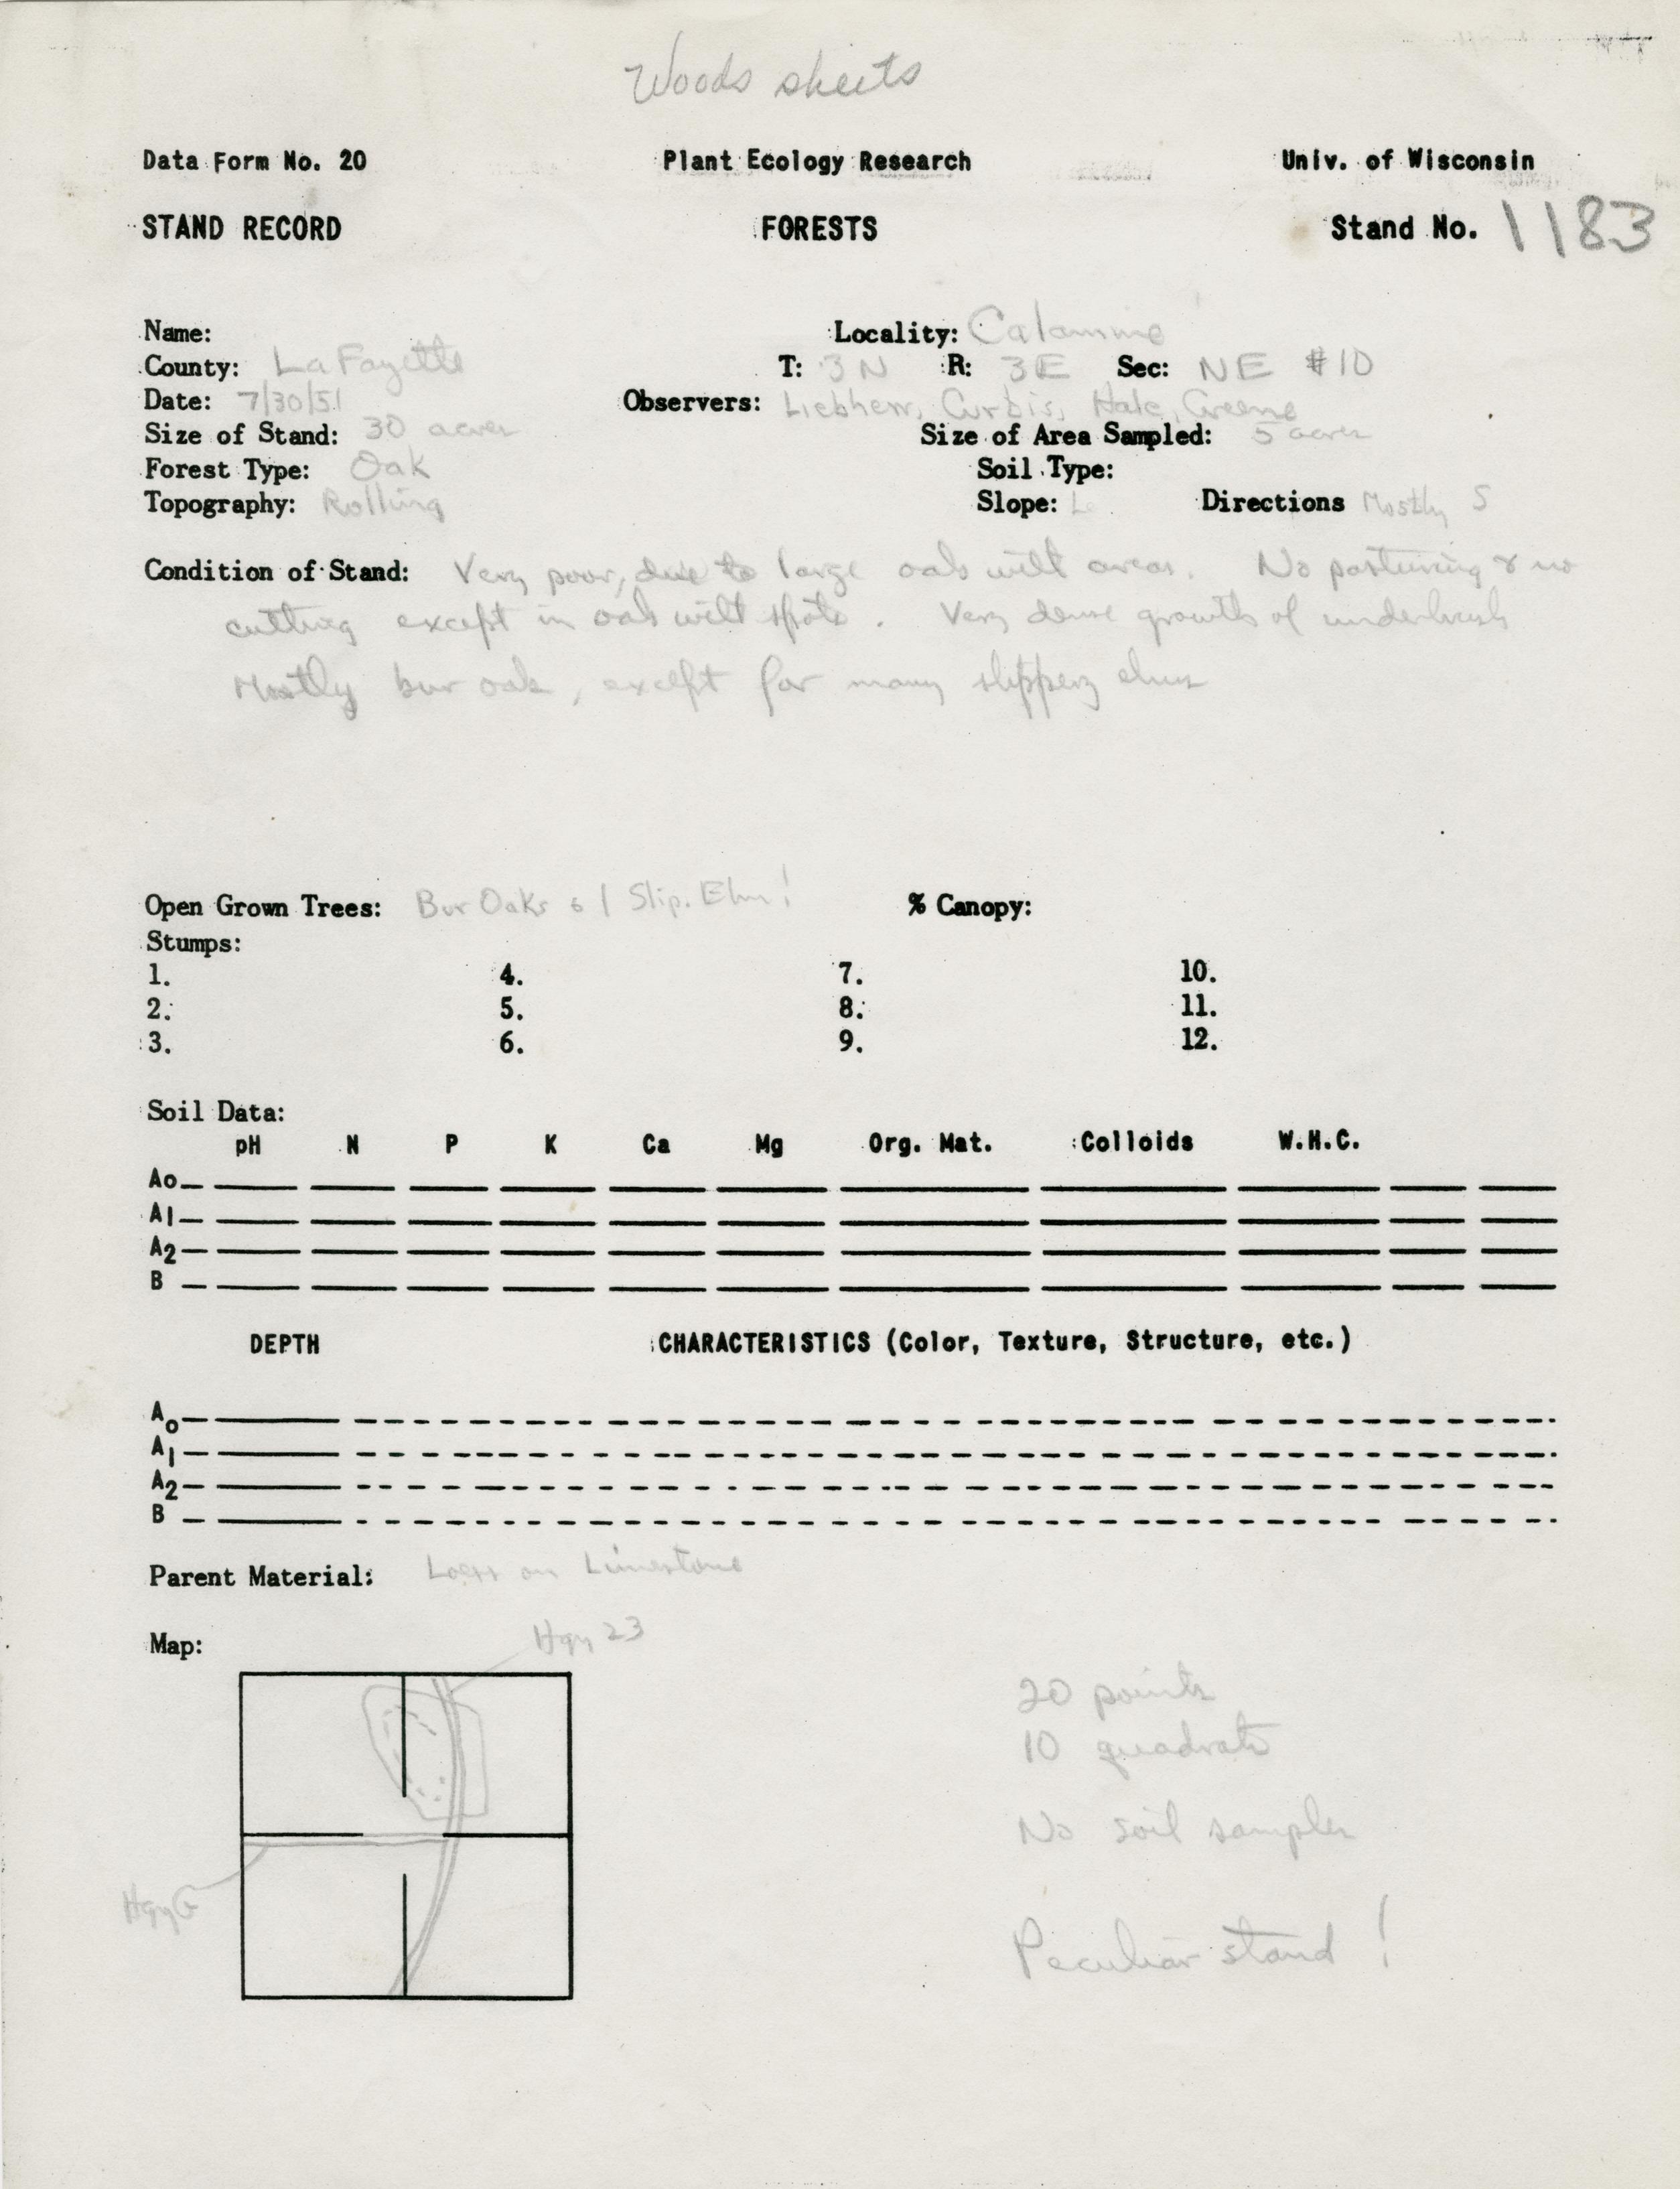 Woods sheets
Data Form No. 20 Plant Ecology Research Univ. of Wisconsin
STAND RECORD FORESTS Stand No. 1183
Name: Locality: Calamine
County: La Fayette T: 3N R: 3E Sec: NE #10
Date: 7/30/51 Observers: Liebherr, Curtis, Hale, Greene
Size of Stand: 30 acres Size of Area Sampled: 5 acres
Forest Type: Oak Soil Type:
Topography: Rolling Slope: Directions Mostly S
Condition of Stand: Very poor, due to large oak wilt areas. No pasturing & no
cutting except in oak wilt spots. Very dense growth of underbrush
Mostly bur oak, except for many slippery elms
Open Grown Trees: Bur Oaks & 1 Slip. Elm! % Canopy:
Stumps:
1. 4. 7. 10.
2. 5. 8. 11.
3. 6. 9. 12.
Soil Data:
pH N P K Ca Mg Org. Mat. Colloids W.H.C.
Ao
A1
A2
B
DEPTH CHARACTERISTICS (Color, Texture, Structure, etc.)
Ao
A1
A2
B
Parent Material: Loess on Limestone
Map: Hgy 23
20 points
10 quadrats
No soil samples
Hgy G
Peculiar stand!